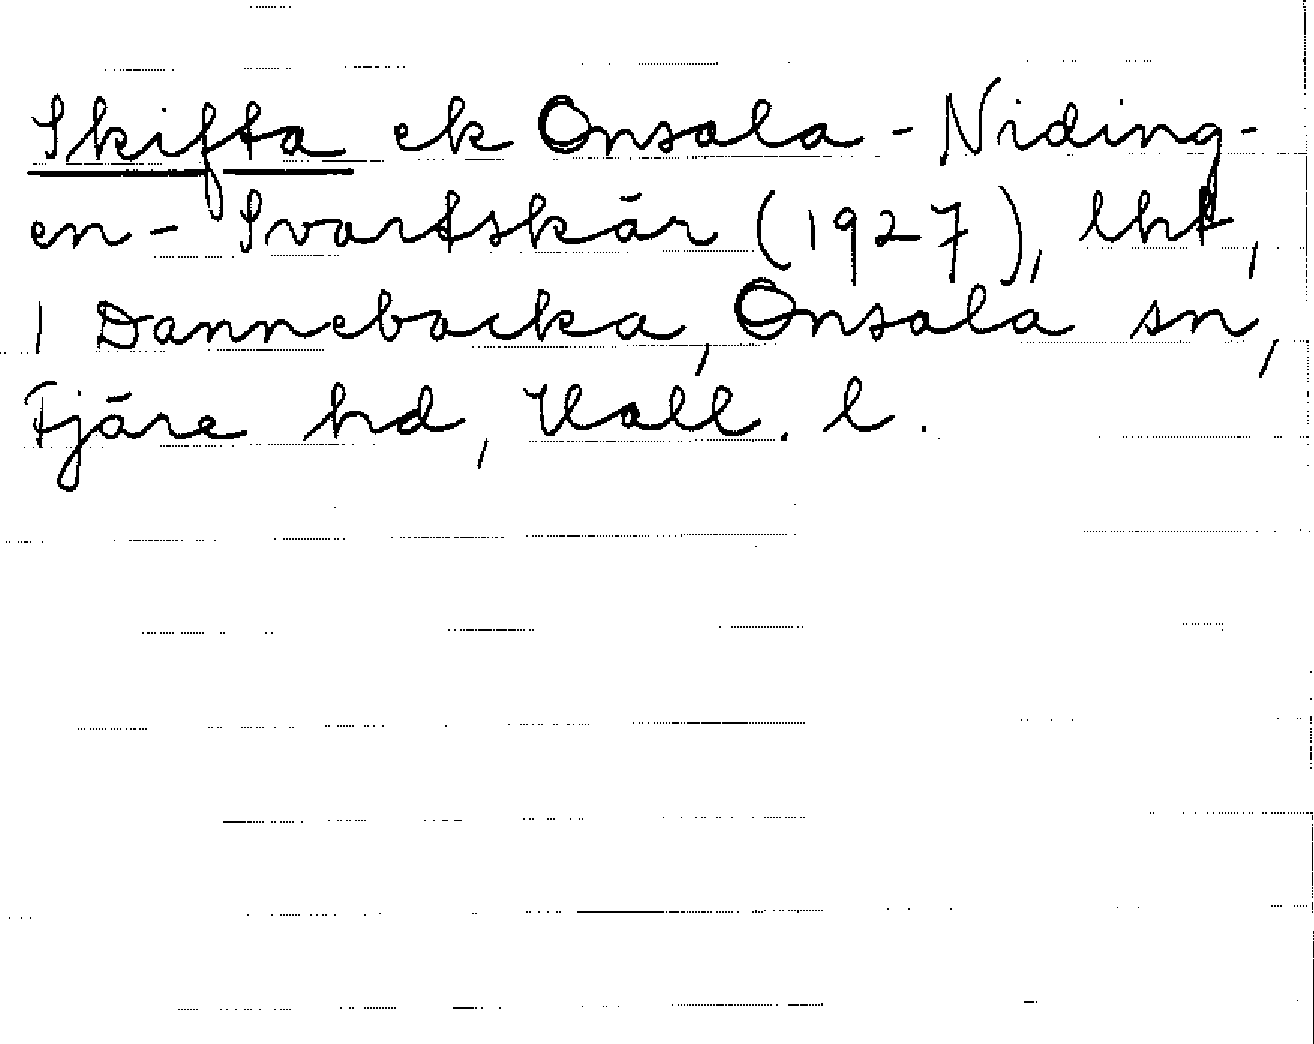 Skifta ek Onsala - Niding-
en - Svartskär (1927), lht,
1 Dannebacka, Onsala sn,
Fjäre hd, Hall. l.